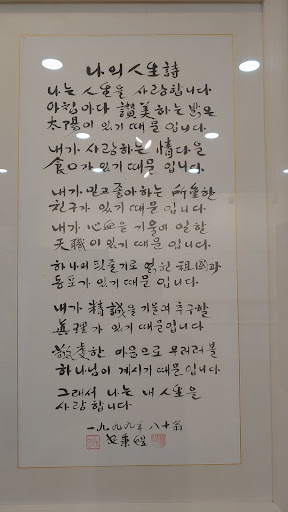 나의 人生 詩
나는 人生을 사랑합니다
아침마다 讚美하는 밝은
太陽이 있기 때문입니다
내가 사랑하는 情다운
食口가 있기 때문입니다.
내가 믿고 좋아하는 所重한
친구가 있기 때문입니다
내가 心血을 기울여 일할
天職이 있기 때문입니다
하나의 핏줄기로 얽힌 祖國과
동포가 있기 때문입니다
내가 精誠을 기울여 추구할
眞理가 있기 때문입니다
敬虔한 마음으로 우러러볼
하나님이 계시기 때문입니다
그래서 나는 내 人生을
사랑합니다
一九九九年 八十翁
安秉煜